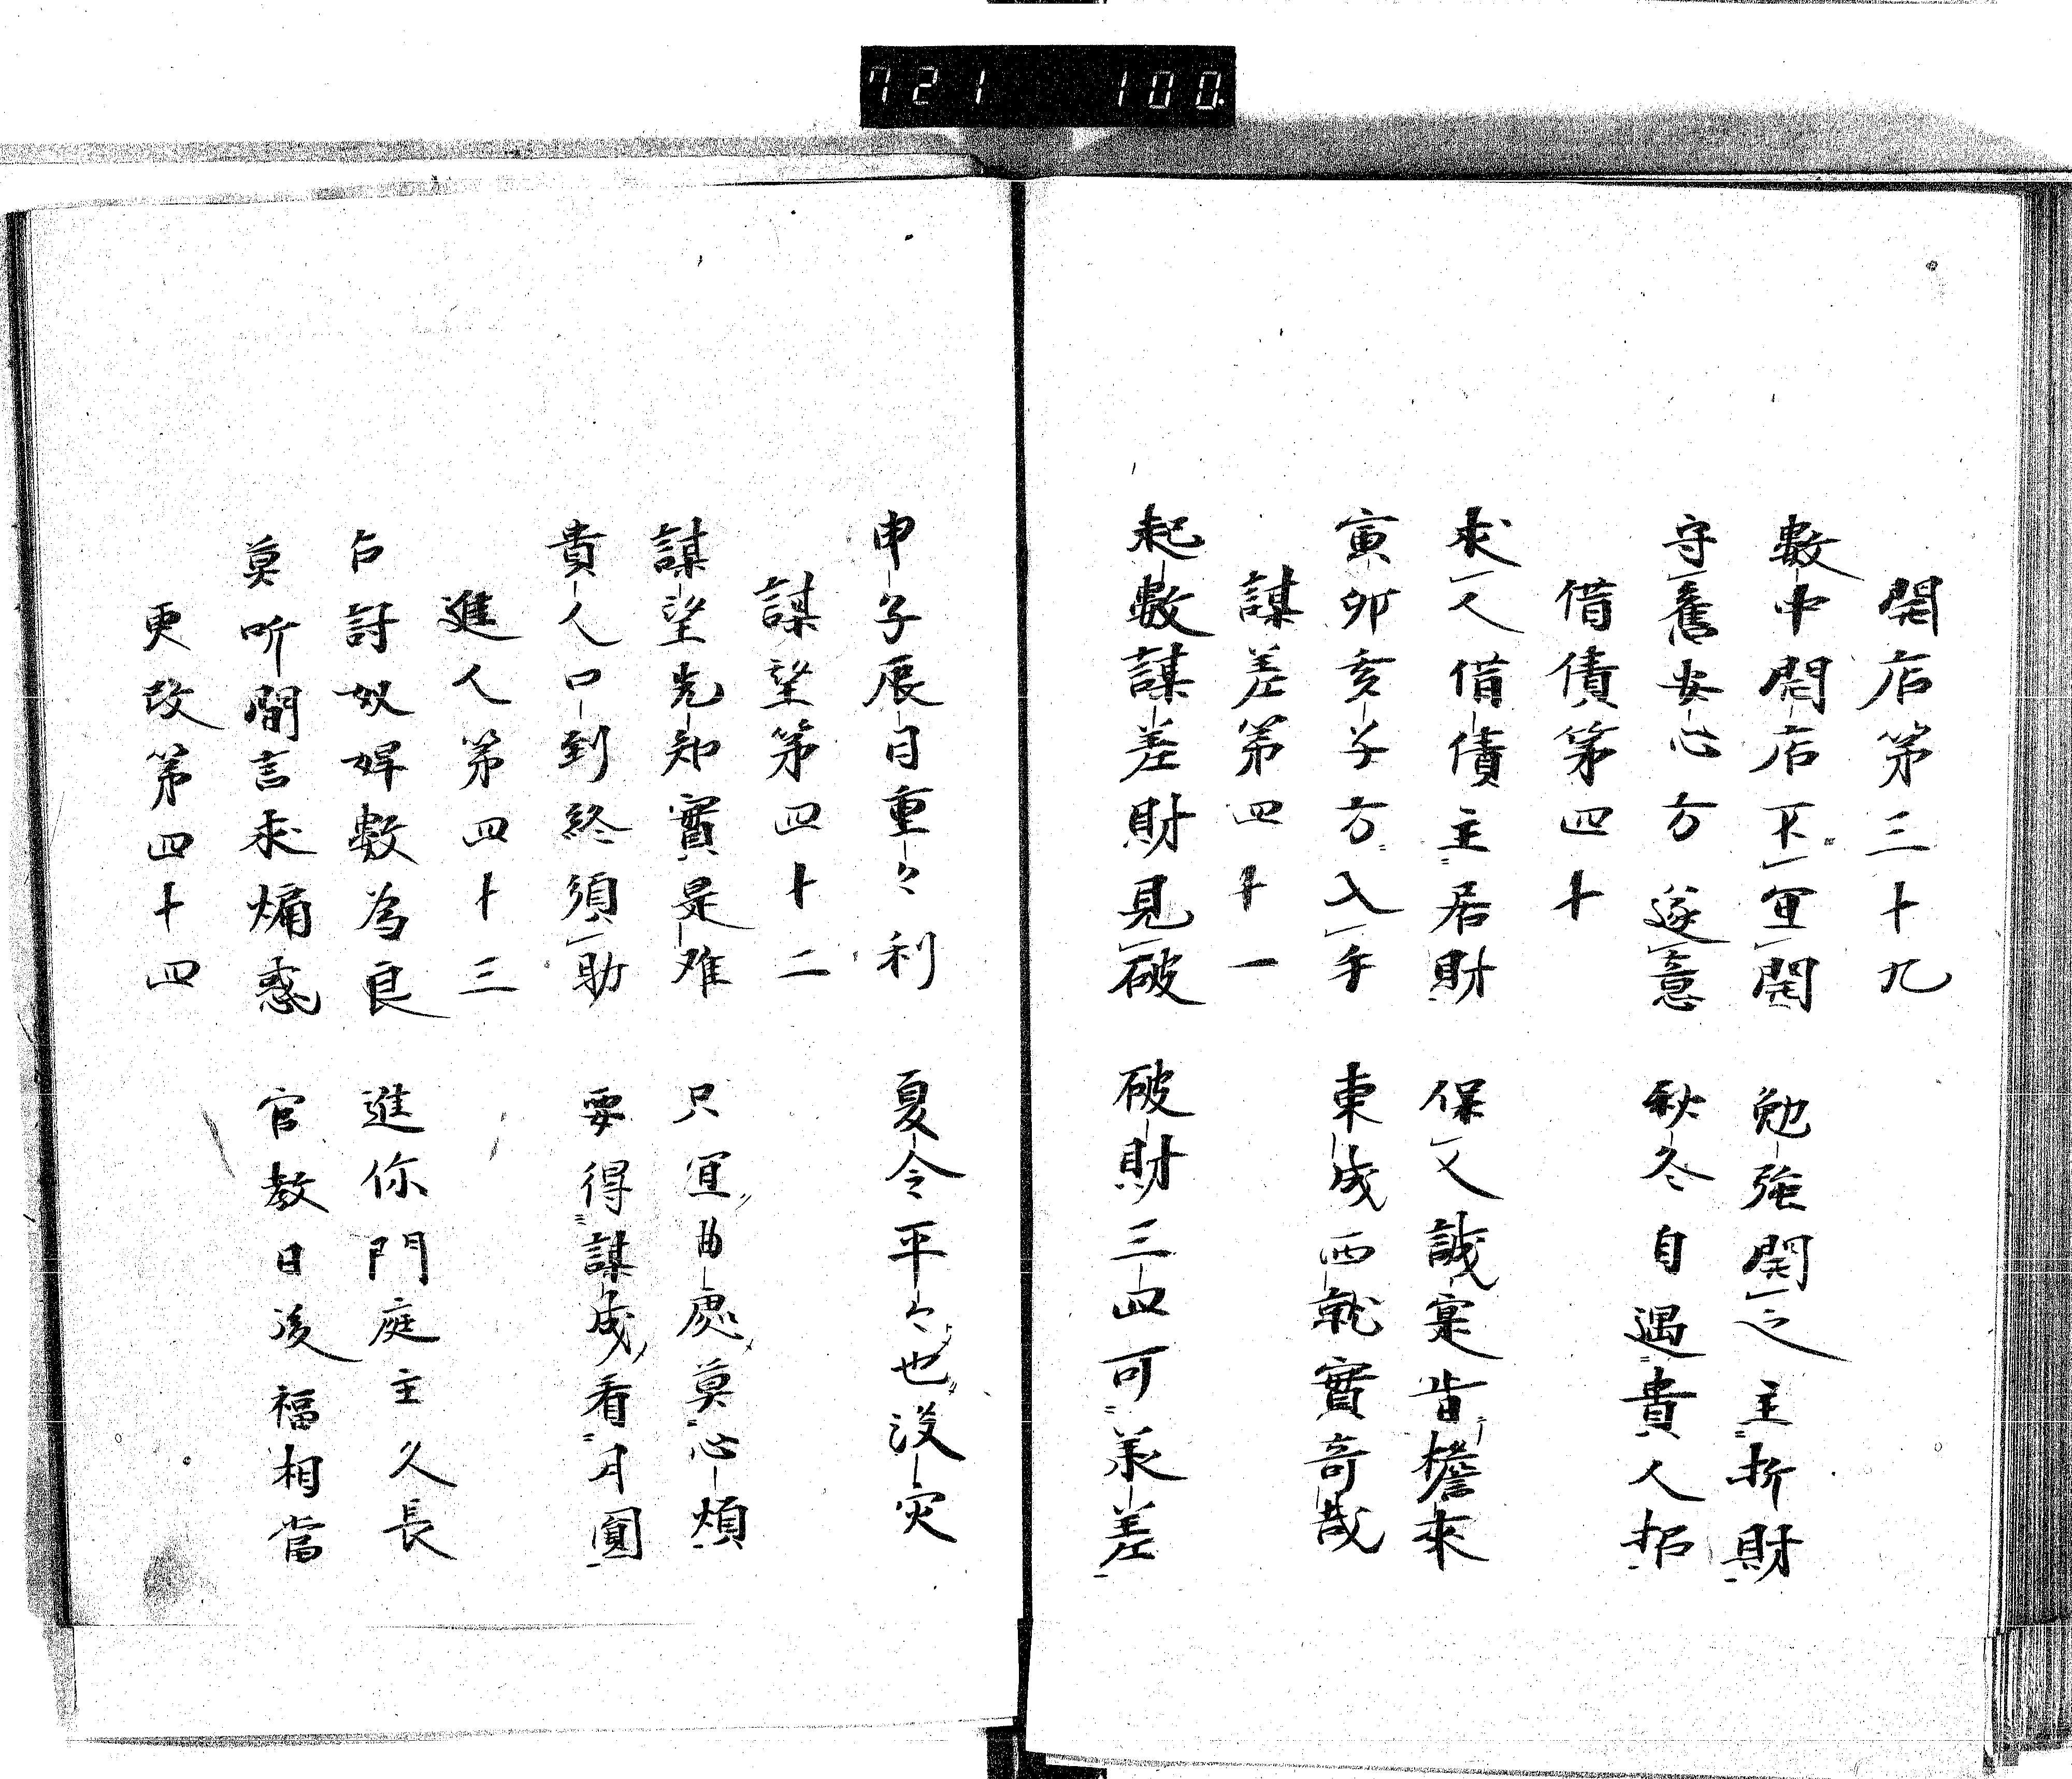 721 100
開店第三十九
數中開店不宜開 勉強開之主折財
守舊安心方遂意 秋冬自遇貴人招
借債第四十
求人借債主居財 保文誠寔皆檐來
寅卯亥子方入手 東成西就實奇哉
謀差第四十一
起數謀差財見破 破財三四可求差
申子辰日重々利 夏令平々也没灾
謀望第四十二
謀望先知實是难 只宜曲處莫心煩
貴人口到終須助 要得謀成看月圓
進人第四十三
占討奴婢數為良 進你門庭主久長
莫听閒言求煽惑 官教日後福相當
更改第四十四